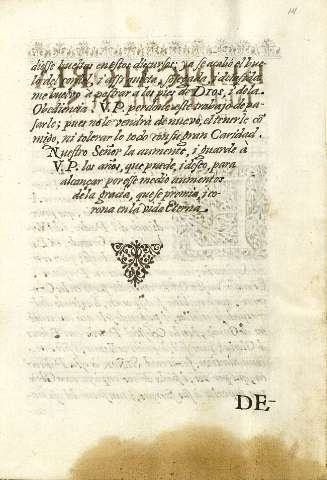 diesse huestas en estos discursos: ya se acabó el
me buelvo a postrar a los pies de Dios, i de la
Obediencia. V.P. perdone este trabajo de pa-
sarle; pues no le vendrà de nuevo, el tenerle cõ
migo, ni tolerarlo todo con su gran Caridad.
Nuestro Señor la aumente, i guarde à
V.P. los años, que puede, i deseo, para
alcançar por esse medio aumentos
de la gracia, que se premia, i co-
rona en la vida Eterna.
DE-